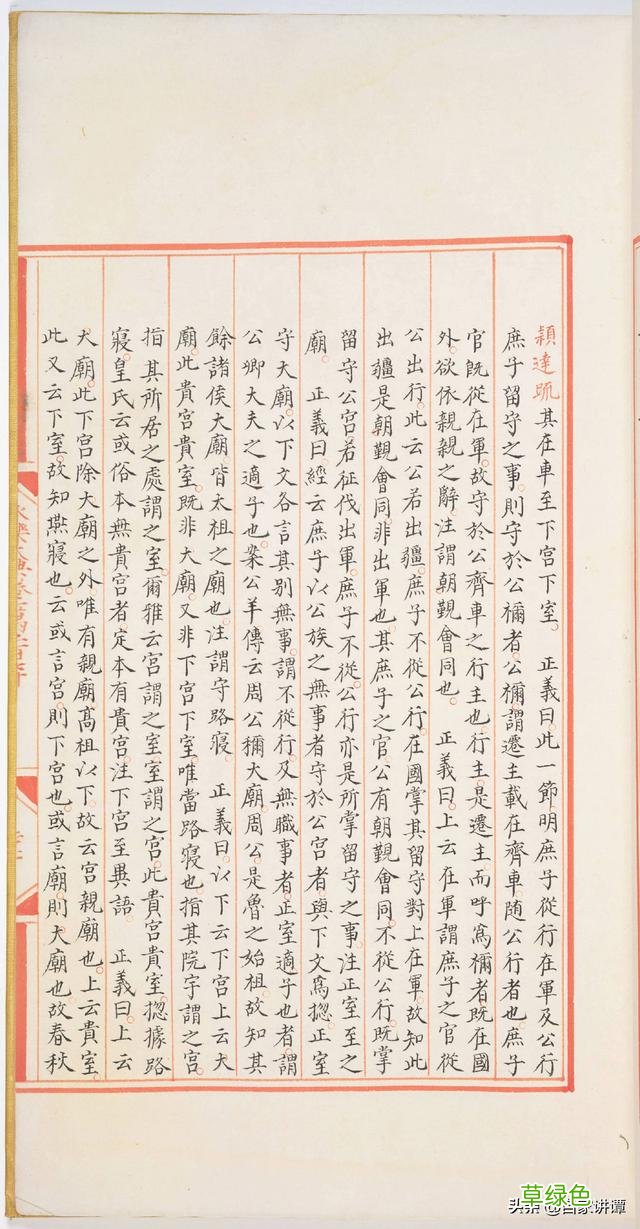 頴達疏 其在車至下宫下室 正義曰此一節明庶子從行在軍及公行
庶子留守之事則守於公禰者公禰謂遷主載在齊車随公行者也庶子
官既從在軍故守於公齊車之行主也行主是遷主而呼爲禰者既在國
外欲依親親之辭注謂朝覲會同也 正義曰上云在軍謂庶子之官從
公出行此云公若出疆庶子不從公行在國掌其留守對上在軍故知此
出疆是朝覲會同非出軍也其庶子之官公有朝覲會同不從公行既掌
留守公宫若征伐出軍庶子不從公行亦是所掌留守之事注正室至之
廟 正義曰經云庶子以公族之無事者守於公宫者與下文爲揔正室
守大廟以下文各言其别無事謂不從行及無職事者正室適子也者謂
公卿大夫之適子也案公羊傳云周公稱大廟周公是魯之始祖故知其
餘諸侯大廟皆太祖之廟也注謂守路寢 正義曰以下云下宫上云大
廟此貴宫貴室既非大廟又非下宫下室唯當路寢也指其院宇謂之宫
指其所居之處謂之室爾雅云宫謂之室室謂之宫此貴宫貴室揔據路
寢皇氏云或俗本無貴宫者定本有貴宫注下宫至異語 正義曰上云
大廟此下宫除大廟之外唯有親廟髙祖以下故云宫親廟也上云貴室
此又云下室故知燕寢也云或言宫則下宫也或言廟則大廟也故春秋
草绿色
头条 @百家讲谭